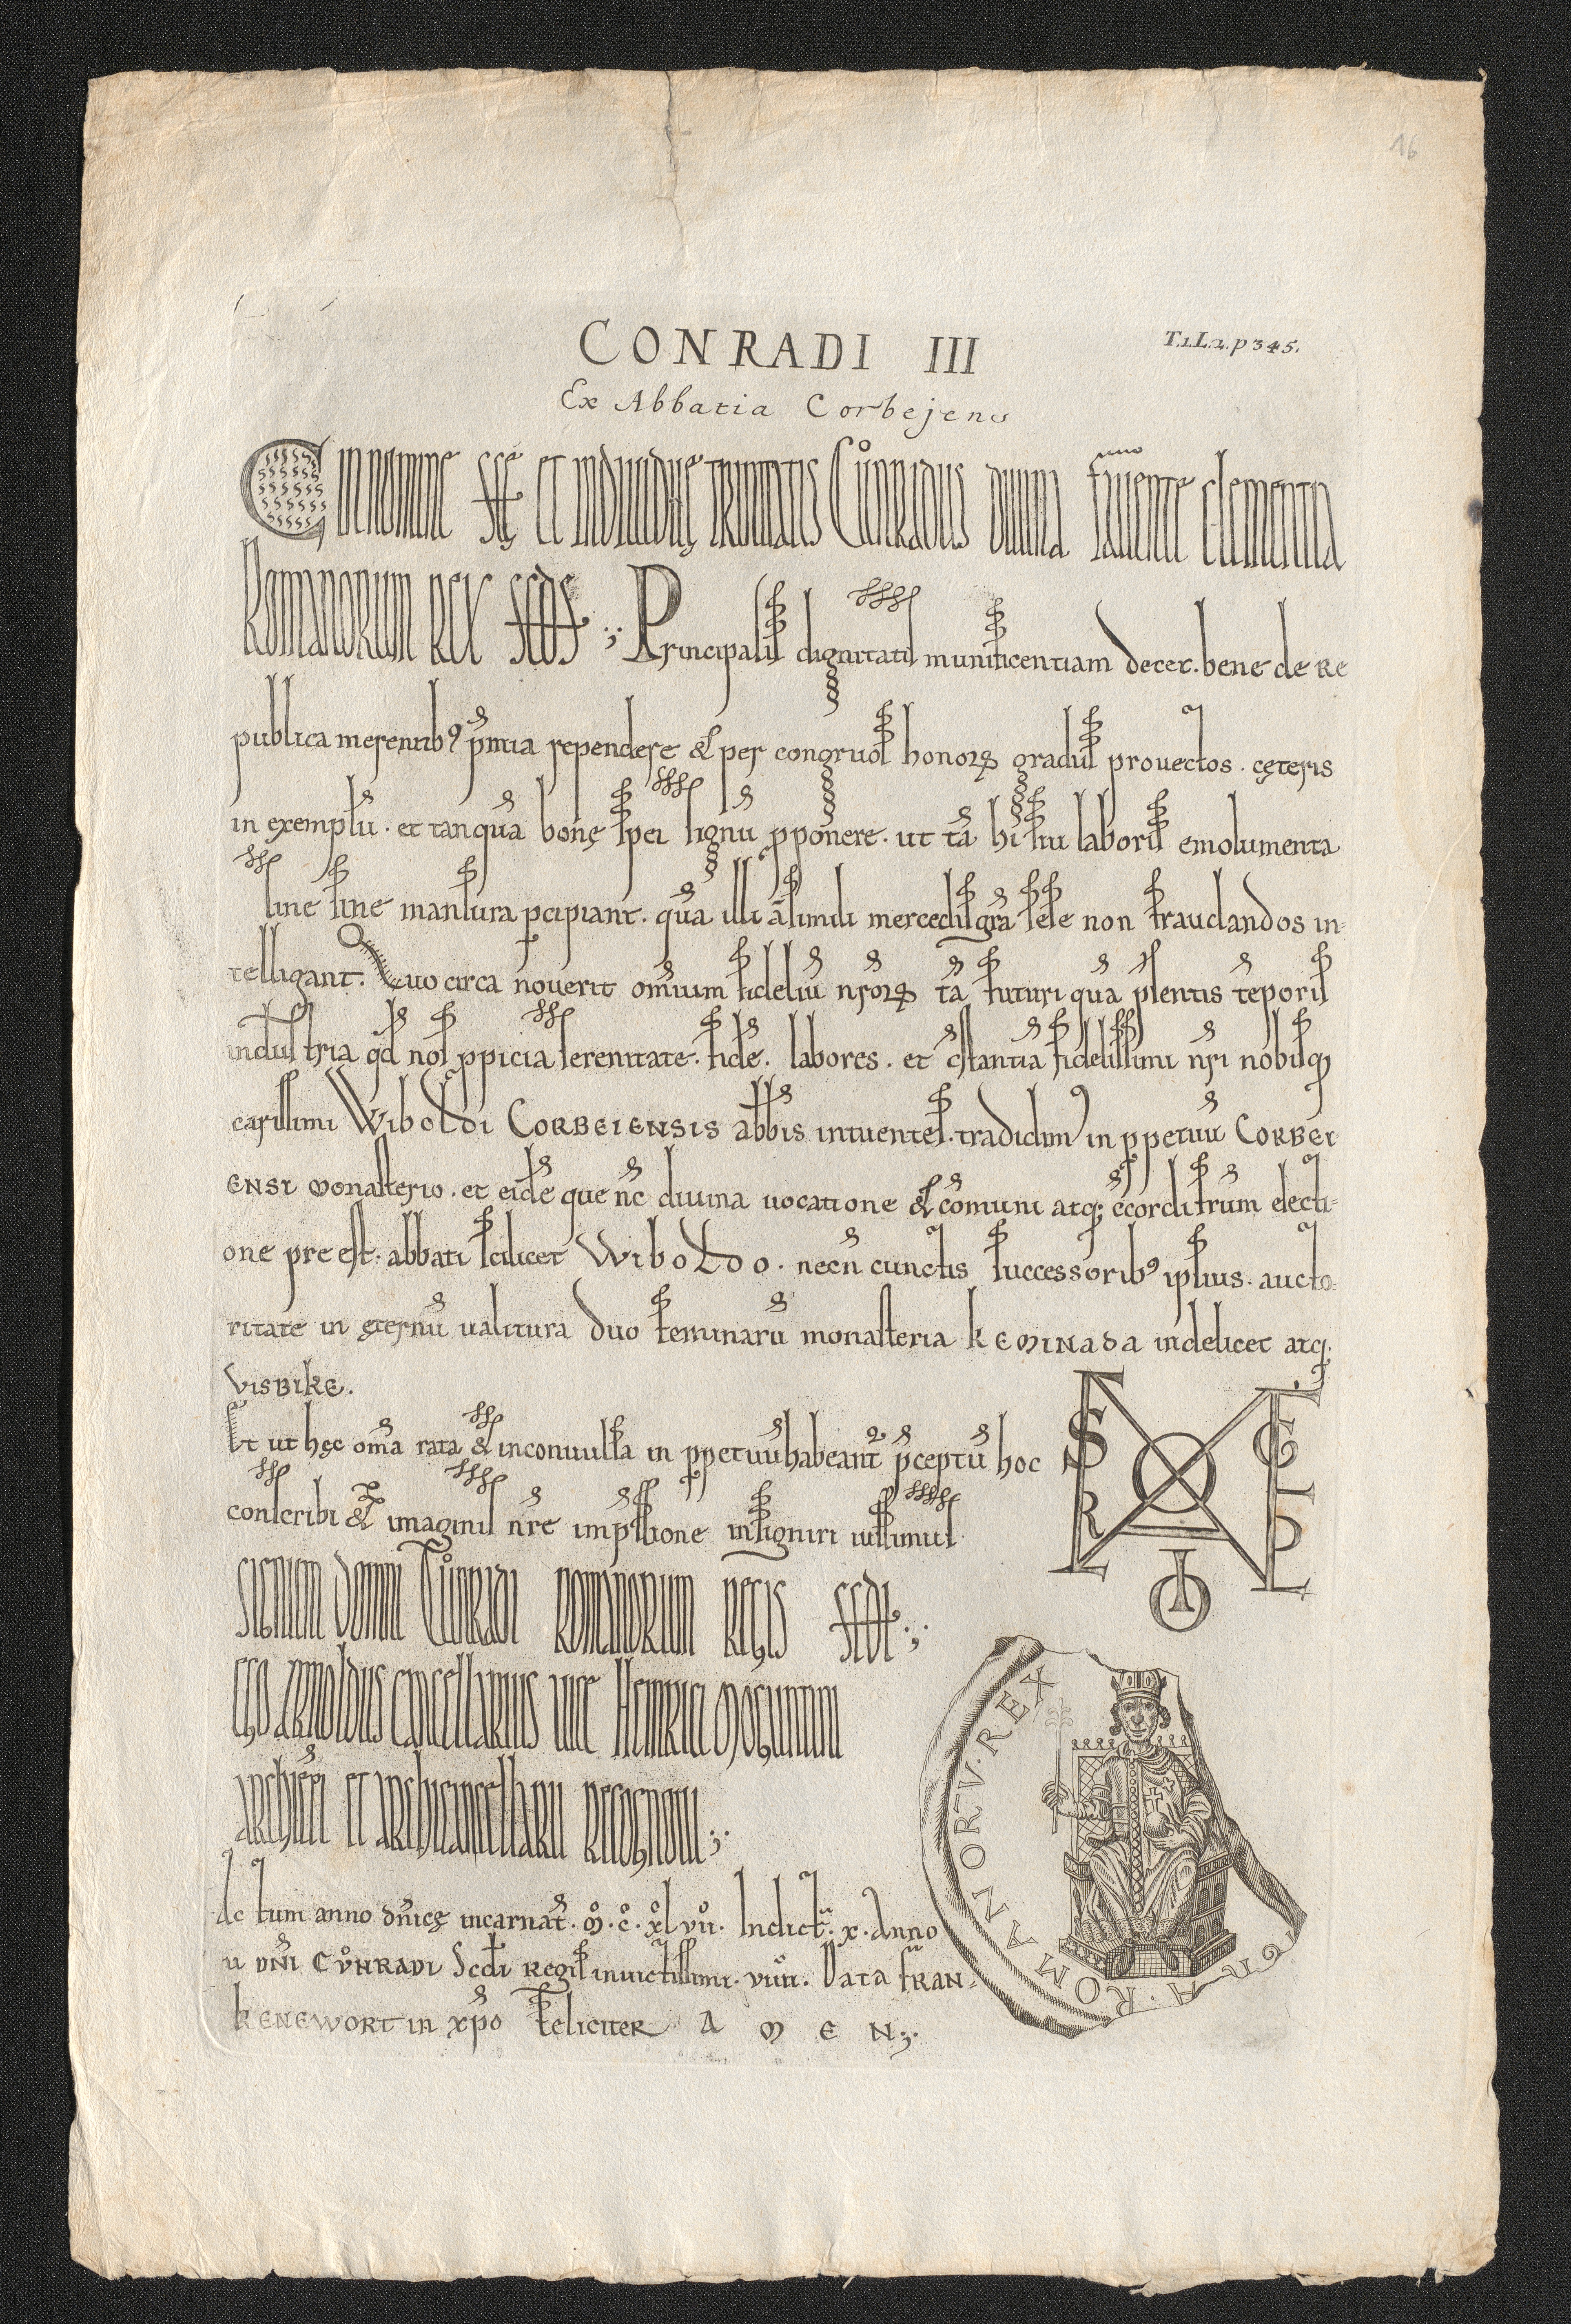 16
CONRADI III
T.1.L.2.p 345.
Ex Abbatia Corbejens
C In nomine scę et individuę trinitatis Cůnradus divina favente clementia
Romanorum rex scds ;· Principalis dignitatis munificentiam decet. bene de re
publica merentib9 p̄mia rependere & per congruos honorꝝ gradus provectos. cęteris
in exemplū. et tanquā bonę spei signū pponere. ut tā hi sui laboris emolumenta
sine fine mansura pcipiant. quā illi a simili mercedis grā sese non fraudandos in-
telligant. Quo circa noverit omīum fideliū nrōrꝝ tā futuri quā p̄sentis tēporis
industria qd nos ppicia serenitate. fidē. labores. et cstantiā fidelissimi nri nobisq;
carissimi Wiboldi Corbeiensis abbis intuentes. tradidim9 in ppetuū Corbei
ensi monasterio. et eidē que nc divina vocatione & cōmuni atq; ccordi frum electi-
one pre est. abbati scilicet Wiboldo. necn cunctis successorib9 ipsius. aucto-
ritate in ęternū valitura duo feminarū monasteria keminada videlicet atq;
visbike.
Et ut hęc oma rata & inconvulsa in ppetuū habeant p̄ceptū hoc
conscribi & imaginis nr̄e imp̄ssione insigniri iussimus
Signum domni Cůnradi romanorum regis scdi ·;·
Ego Arnoldus cancellarius vice Heinrici Moguntini
archiepi et archicancellarii recognovi ;·
Ac tum anno dn̄icę incarnat. m. c. xl vii. Indict. x. Anno
v dn̄i cůnradi Scdi regis invictissimi. viiii. Data fran-
kenewort in xpo feliciter A M E N ;·
S R L E I P O
A · ROMANORV · REX